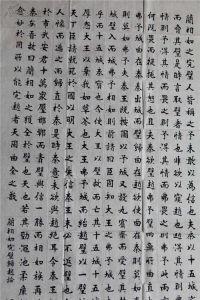 藺相如之完璧人皆稱之予未敢以為信也夫秦以十五城之空名詐趙
而脅其璧是時言取璧者情也非欲以窺趙也趙得其
情則弗予不得其情則予得其情而畏之則予得其情而弗畏之則弗予此兩言決耳奈之
何既畏而復挑其怒也且夫秦欲璧趙弗予璧兩無所曲直也入璧而秦
弗予城曲在秦秦出城而璧歸曲在趙欲使曲在秦則莫如棄璧畏棄璧則莫如
弗予夫秦王既按圖以予城又設九賓齋而受璧其勢不得不予城
璧入而城弗予相如則前請曰臣固知大王之弗予城也夫璧非趙璧
乎而十五城秦寶也今使大王以璧故而亡其十五城十五城之子弟皆
厚怨大王以棄我如草芥也大王弗予城而紿趙璧以一璧故而失信於
天下臣請就死於國以明大王之失信秦王未必不返璧也今奈何使舍
人懷而逃之而歸直於秦是時秦意未欲與趙絕耳令秦王怒而僇相如
於市武安君十萬眾壓邯鄲而責璧與信一勝而相如族再勝而璧終入
秦矣吾故曰藺相如之獲全於璧也天也若其勁澠池柔廉頗則愈出而
愈妙於用所以能完趙者天固曲全之哉
藺相如完璧歸趙論